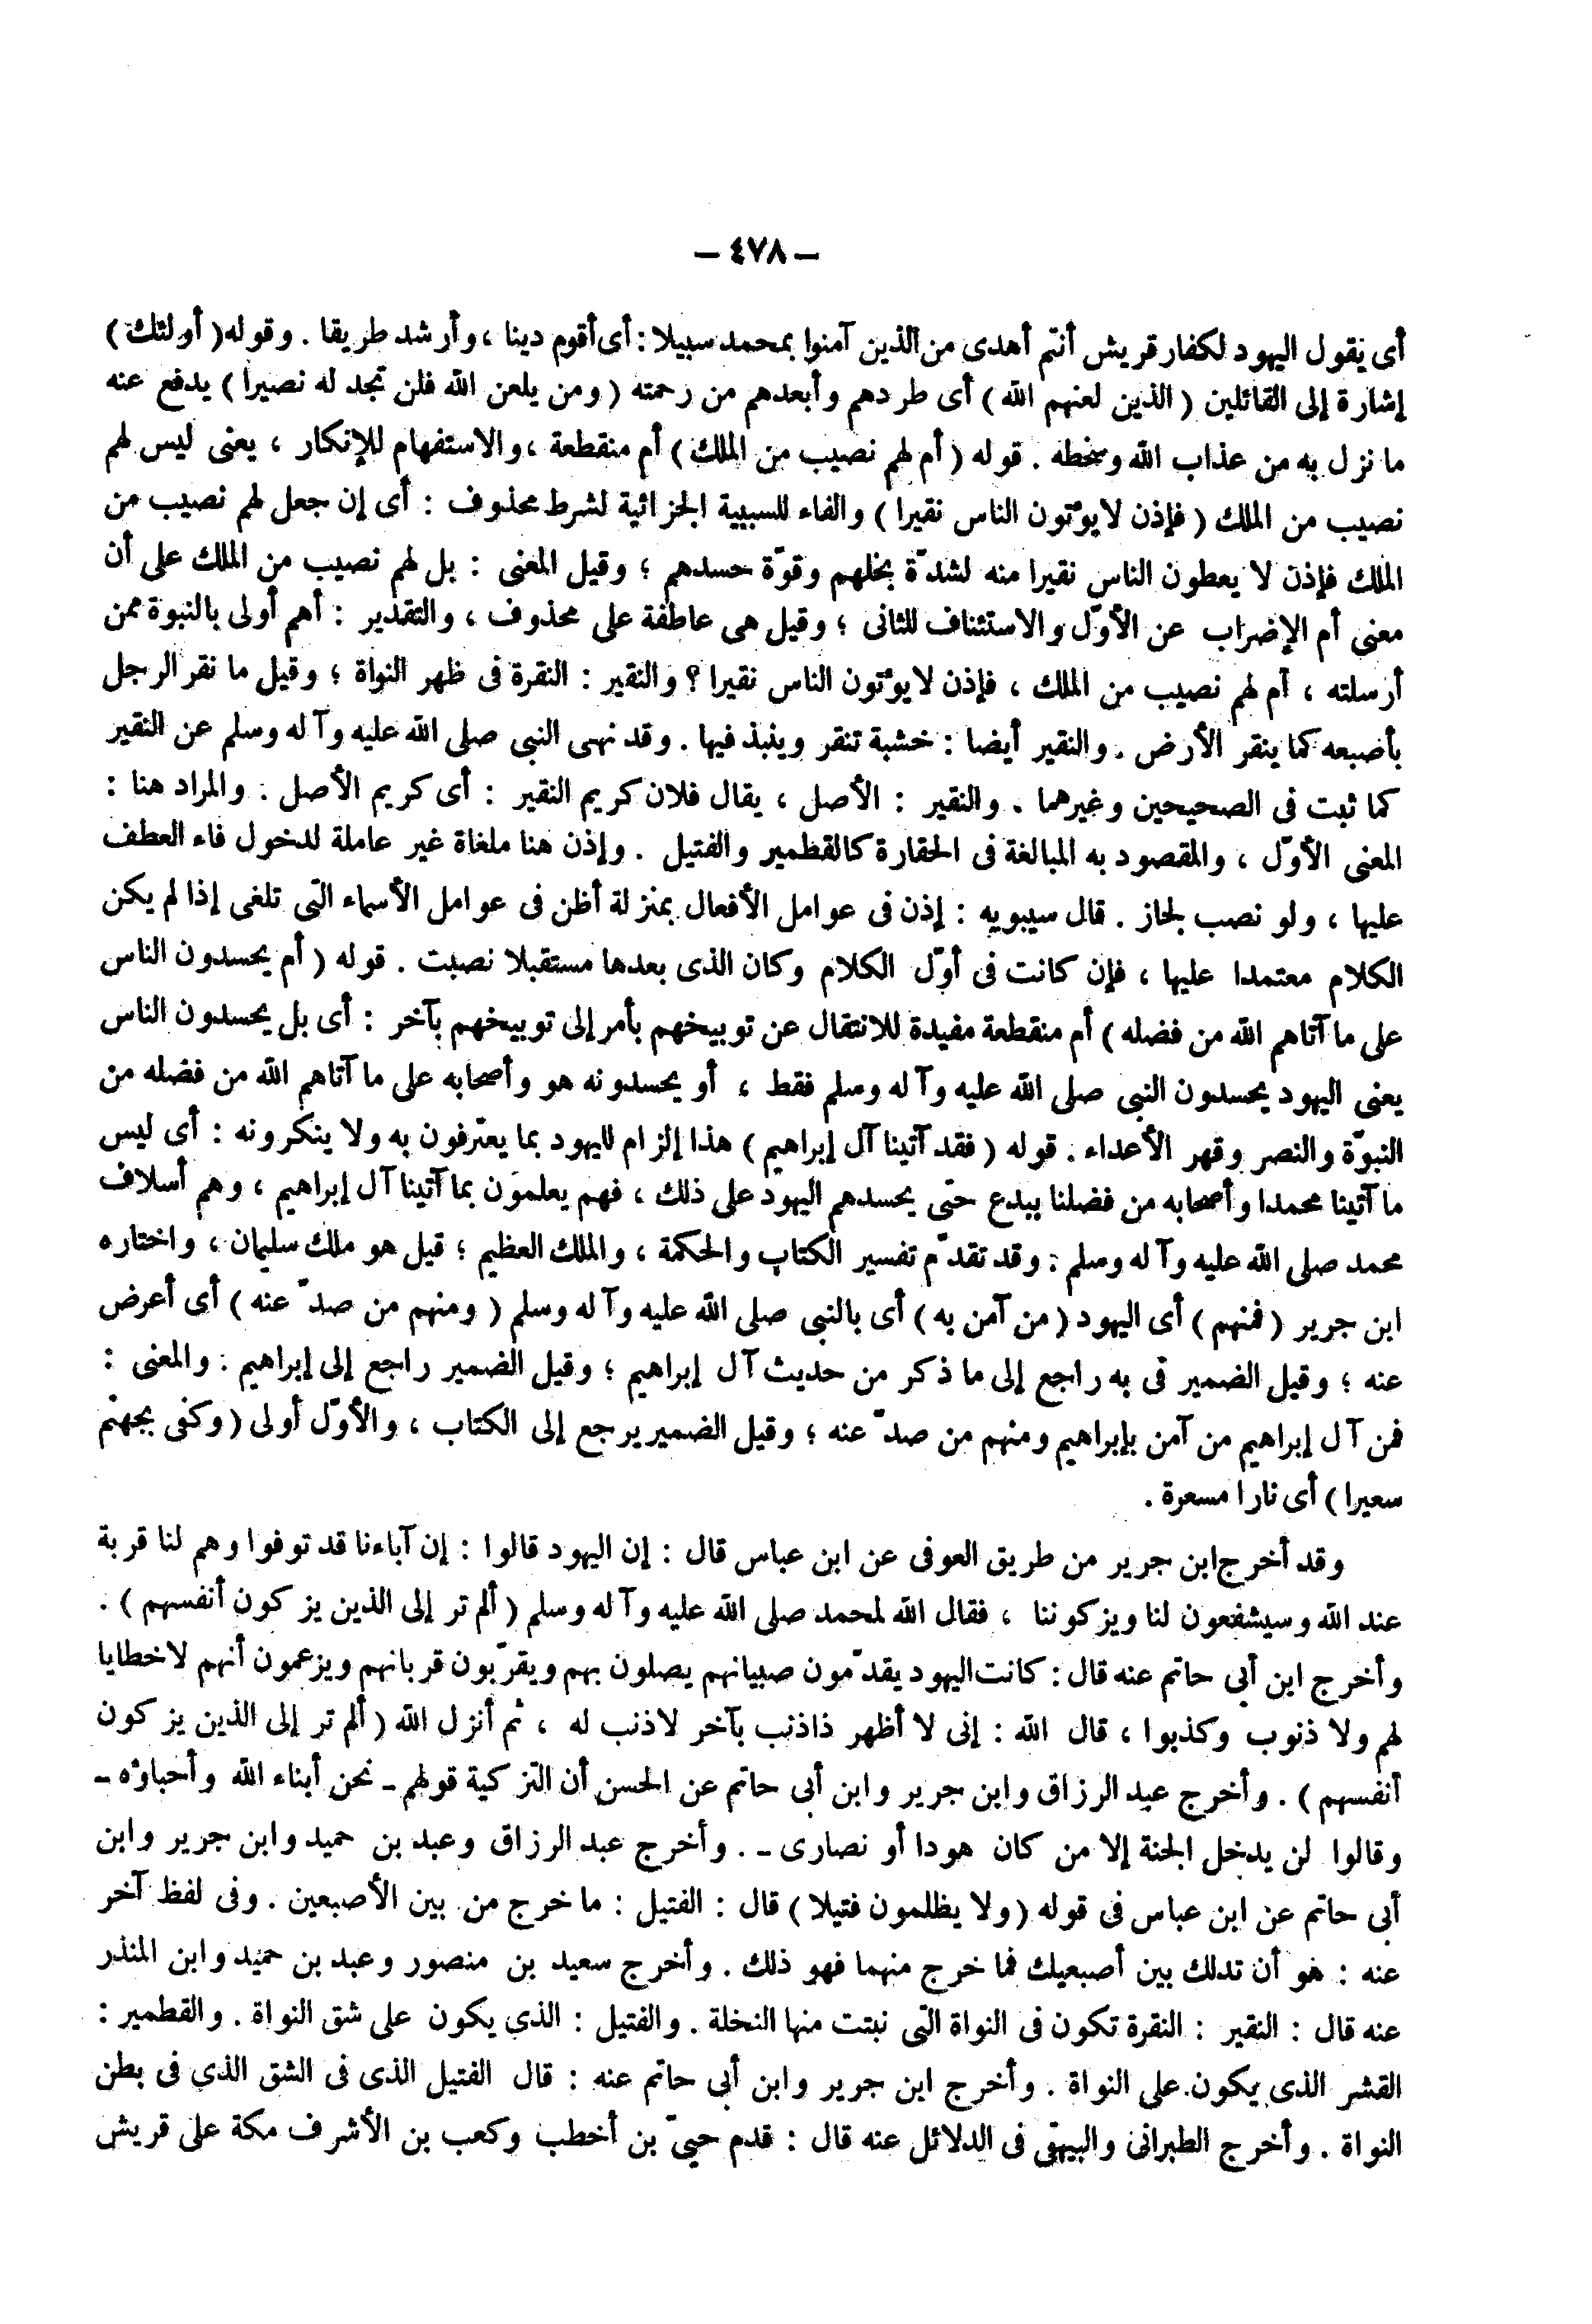 – ٤٧٨ –
أى يقول اليهود لكفار قريش أنتم أهدى من الذين آمنوا بمحمد سبيلا : أى أقوم دينا ، وأرشد طريقا . وقوله ( أولئك )
إشارة إلى القائلين ( الذين لعنهم الله ) أى طردهم وأبعدهم من رحمته ( ومن يلعن الله فلن تجد له نصيرا ) يدفع عنه
ما نزل به من عذاب الله وسخطه . قوله ( أم لهم نصيب من الملك ) أم منقطعة ، والاستفهام للإنكار ، يعنى ليس لهم
نصيب من الملك ( فإذن لا يؤتون الناس نقيرا ) والفاء للسببية الجزائية لشرط محذوف : أى إن جعل لهم نصيب من
الملك فإذن لا يعطون الناس نقيرا منه لشدّة بخلهم وقوّة حسدهم ؛ وقيل المعنى : بل لهم نصيب من الملك على أن
معنى أم الإضراب عن الأوّل والاستئناف للثانى ؛ وقيل هى عاطفة على محذوف ، والتقدير : أهم أولى بالنبوة ممن
أرسلته ، أم لهم نصيب من الملك ، فإذن لا يؤتون الناس نقيرا ؟ والنقير : النقرة فى ظهر النواة ؛ وقيل ما نقر الرجل
بأصبعه كما ينقر الأرض . والنقير أيضا : خشبة تنقر وينبذ فيها . وقد نهى النبى صلى الله عليه وآله وسلم عن النقير
كما ثبت فى الصحيحين وغيرهما . والنقير : الأصل ، يقال فلان كريم النقير : أى كريم الأصل . والمراد هنا :
المعنى الأوّل ، والمقصود به المبالغة فى الحقارة كالقطمير والفتيل . وإذن هنا ملغاة غير عاملة لدخول فاء العطف
عليها ، ولو نصب لجاز . قال سيبويه : إذن فى عوامل الأفعال بمنزلة أظن فى عوامل الأسماء التى تلغى إذا لم يكن
الكلام معتمدا عليها ، فإن كانت فى أوّل الكلام وكان الذى بعدها مستقبلا نصبت . قوله ( أم يحسدون الناس
على ما آتاهم الله من فضله ) أم منقطعة مفيدة للانتقال عن توبيخهم بأمر إلى توبيخهم بآخر : أى بل يحسدون الناس
يعنى اليهود يحسدون النبى صلى الله عليه وآله وسلم فقط ، أو يحسدونه هو وأصحابه على ما آتاهم الله من فضله من
النبوّة والنصر وقهر الأعداء . قوله ( فقد آتينا آل إبراهيم ) هذا إلزام لليهود بما يعترفون به ولا ينكرونه : أى ليس
ما آتينا محمدا وأصحابه من فضلنا ببدع حتى يحسدهم اليهود على ذلك ، فهم يعلمون بما آتينا آل إبراهيم ، وهم أسلاف
محمد صلى الله عليه وآله وسلم . وقد تقدّم تفسير الكتاب والحكمة ، والملك العظيم ؛ قيل هو ملك سليمان ، واختاره
ابن جرير ( فمنهم ) أى اليهود ( من آمن به ) أى بالنبى صلى الله عليه وآله وسلم ( ومنهم من صدّ عنه ) أى أعرض
عنه ؛ وقيل الضمير فى به راجع إلى ما ذكر من حديث آل إبراهيم ؛ وقيل الضمير راجع إلى إبراهيم . والمعنى :
فمن آل إبراهيم من آمن بإبراهيم ومنهم من صدّ عنه ؛ وقيل الضمير يرجع إلى الكتاب ، والأوّل أولى ( وكفى بجهنّم
سعيرا ) أى نارا مسعرة .
وقد أخرج ابن جرير من طريق العوفى عن ابن عباس قال : إن اليهود قالوا : إن آباءنا قد توفوا وهم لنا قربة
عند الله وسيشفعون لنا ويزكوننا ، فقال الله لمحمد صلى الله عليه وآله وسلم ( ألم تر إلى الذين يزكون أنفسهم ) .
وأخرج ابن أبى حاتم عنه قال : كانت اليهود يقدّمون صبيانهم يصلون بهم ويقرّبون قربانهم ويزعمون أنهم لا خطايا
لهم ولا ذنوب وكذبوا ، قال الله : إنى لا أظهر ذا ذنب بآخر لا ذنب له ، ثم أنزل الله ( ألم تر إلى الذين يزكون
أنفسهم ) . وأخرج عبد الرزاق وابن جرير وابن أبى حاتم عن الحسن أن التزكية قولهم ـ نحن أبناء الله وأحباؤه ـ
وقالوا لن يدخل الجنة إلا من كان هودا أو نصارى ـ . وأخرج عبد الرزاق وعبد بن حميد وابن جرير وابن
أبى حاتم عن ابن عباس فى قوله ( ولا يظلمون فتيلا ) قال : الفتيل : ما خرج من بين الأصبعين . وفى لفظ آخر
عنه : هو أن تدلك بين أصبعيك فما خرج منهما فهو ذلك . وأخرج سعيد بن منصور وعبد بن حميد وابن المنذر
عنه قال : النقير : النقرة تكون فى النواة التى نبتت منها النخلة . والفتيل : الذى يكون على شق النواة . والقطمير :
القشر الذى يكون على النواة . وأخرج ابن جرير وابن أبى حاتم عنه : قال الفتيل الذى فى الشق الذى فى بطن
النواة . وأخرج الطبرانى والبيهقى فى الدلائل عنه قال : قدم حيىّ بن أخطب وكعب بن الأشرف مكة على قريش